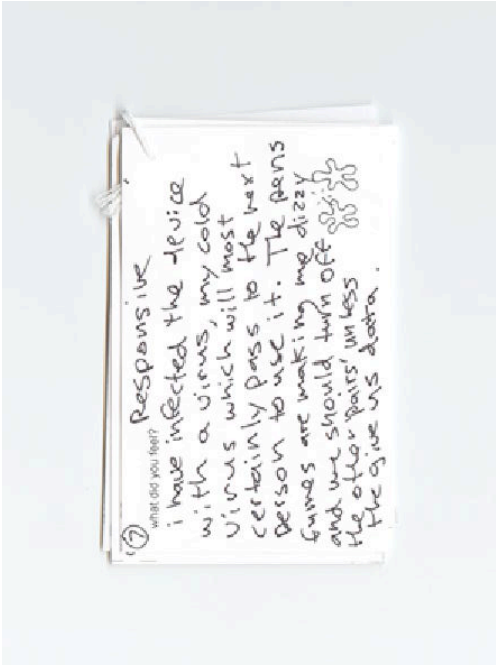 7 what did you feel?
Responsive
i have infected the device
with a virus, my cold
virus which will most
certainly pass to the next
person to use it. The pens
fumes are making me dizzy
and we should turn off
the other pairs' unless
the give us data.